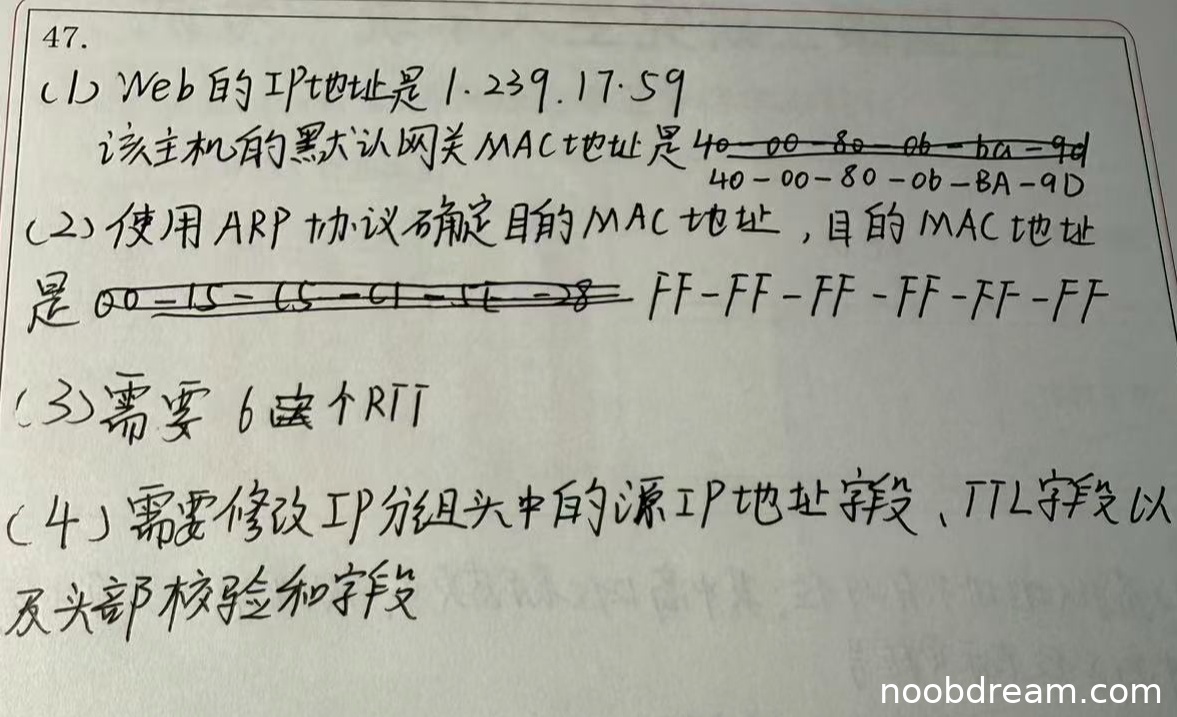 47.
(1) Web的IP地址是1.239.17.59
该主机的默认网关MAC地址是40-00-80-0b-ba-9d
40-00-80-0b-BA-9D
(2) 使用ARP协议确定目的MAC地址,目的MAC地址
是 FF-FF-FF-FF-FF-FF
(3) 需要 6 个RTT
(4) 需要修改IP分组头中的源IP地址字段、TTL字段以
及头部校验和字段
noobdream.com